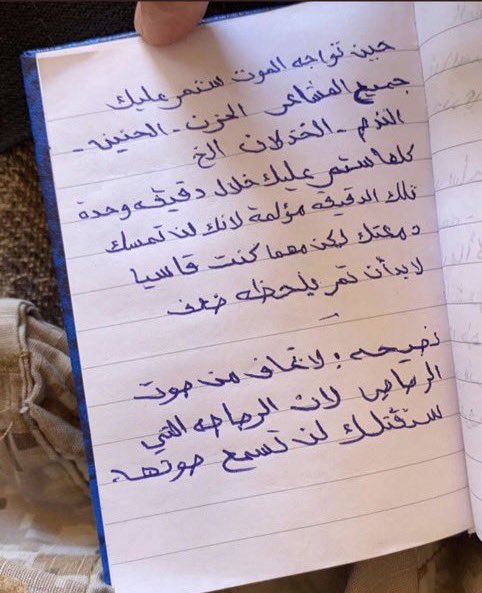 حين تواجه الموت ستمر عليك
جميع المشاعر الحزن - الحنين -
الندم - الخذلان الخ
كلها ستمر عليك خلال دقيقه وحدة
تلك الدقيقه مؤلمة لانك لن تمسك
دمعتك ليكن مهما كنت قاسيا
لا بد أن تمر بلحظه ضعف
نصيحه : لا تخاف من صوت
الرصاص لان الرصاصه التي
ستقتلك لن تسمع صوتها.